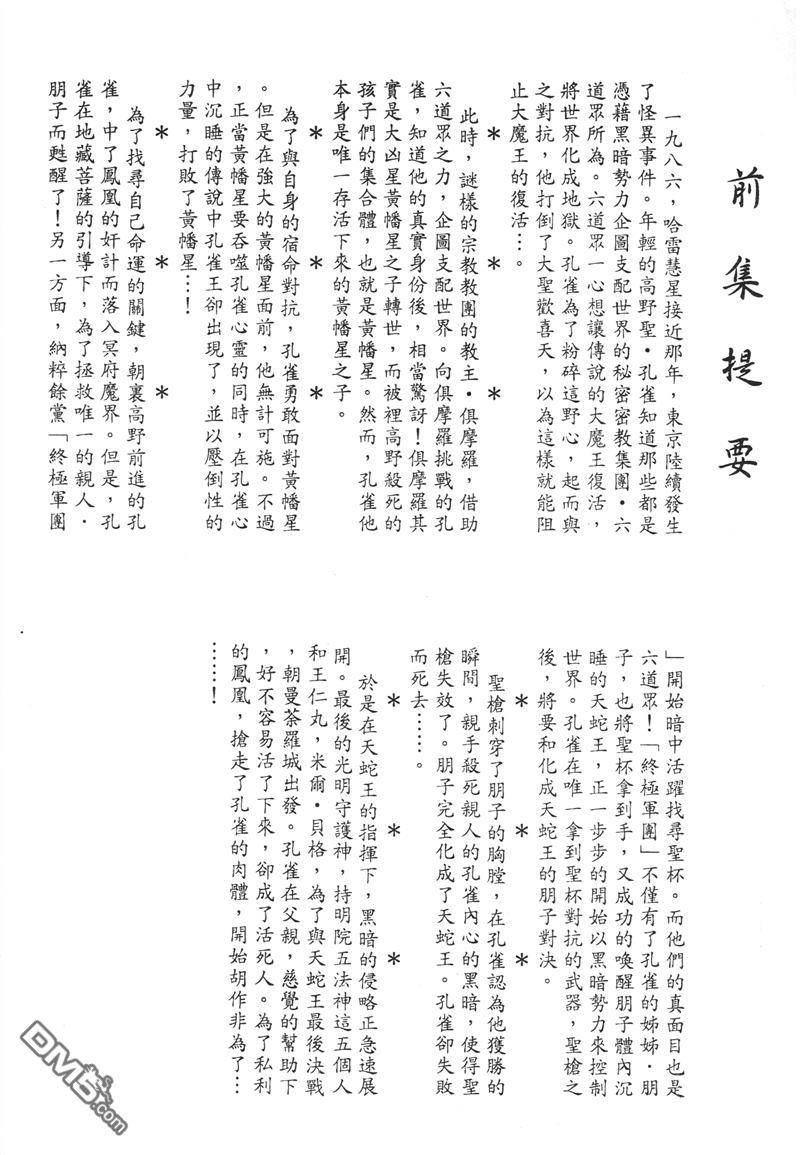 前集提要
一九八六，哈雷慧星接近那年，東京陸續發生
了怪異事件。年輕的高野聖・孔雀知道那些都是
憑藉黑暗勢力企圖支配世界的秘密密教集團・六
道眾所為。六道眾一心想讓傳說的大魔王復活，
將世界化成地獄。孔雀為了粉碎這野心，起而與
之對抗，他打倒了大聖歡喜天，以為這樣就能阻
止大魔王的復活…。
＊ ＊ ＊
此時，謎樣的宗教教團的教主・俱摩羅，借助
六道眾之力，企圖支配世界。向俱摩羅挑戰的孔
雀，知道他的真實身份後，相當驚訝！俱摩羅其
實是大凶星黃幡星之子轉世，而被裡高野殺死的
孩子們的集合體，也就是黃幡星。然而，孔雀他
本身是唯一存活下來的黃幡星之子。
＊ ＊ ＊
為了與自身的宿命對抗，孔雀勇敢面對黃幡星
。但是在強大的黃幡星面前，他無計可施。不過
，正當黃幡星要吞噬孔雀心靈的同時，在孔雀心
中沉睡的傳說中孔雀王卻出現了，並以壓倒性的
力量，打敗了黃幡星…！
＊ ＊ ＊
為了找尋自己命運的關鍵，朝裏高野前進的孔
雀，中了鳳凰的奸計而落入冥府魔界。但是，孔
雀在地藏菩薩的引導下，為了拯救唯一的親人・
朋子而甦醒了！另一方面，納粹餘黨「終極軍團
」開始暗中活躍找尋聖杯。而他們的真面目也是
六道眾！「終極軍團」不僅有了孔雀的姊姊・朋
子，也將聖杯拿到手，又成功的喚醒朋子體內沉
睡的天蛇王，正一步步的開始以黑暗勢力來控制
世界。孔雀在唯一拿到聖杯對抗的武器，聖槍之
後，將要和化成天蛇王的朋子對決。
＊ ＊ ＊
聖槍刺穿了朋子的胸膛，在孔雀認為他獲勝的
瞬間，親手殺死親人的孔雀內心的黑暗，使得聖
槍失效了。朋子完全化成了天蛇王。孔雀卻失敗
而死去……。
＊ ＊ ＊
於是在天蛇王的指揮下，黑暗的侵略正急速展
開。最後的光明守護神，持明院五法神這五個人
和王仁丸，米爾・貝格，為了與天蛇王最後決戰
，朝曼荼羅城出發。孔雀在父親，慈覺的幫助下
，好不容易活了下來，卻成了活死人。為了私利
的鳳凰，搶走了孔雀的肉體，開始胡作非為了…
……！